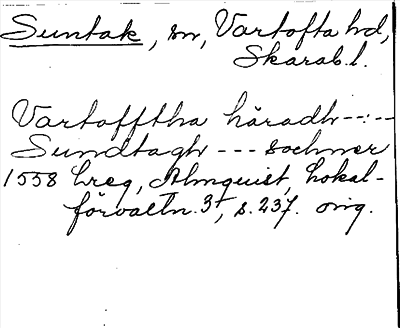 Suntak, sn, Vartofta hd,
Skarab.l.
Vartofftha häradh --:--
Sundtagh --- sochner
1558 Lreg, Almquist, Lokal-
förvaltn. 3¹, s. 237. orig.